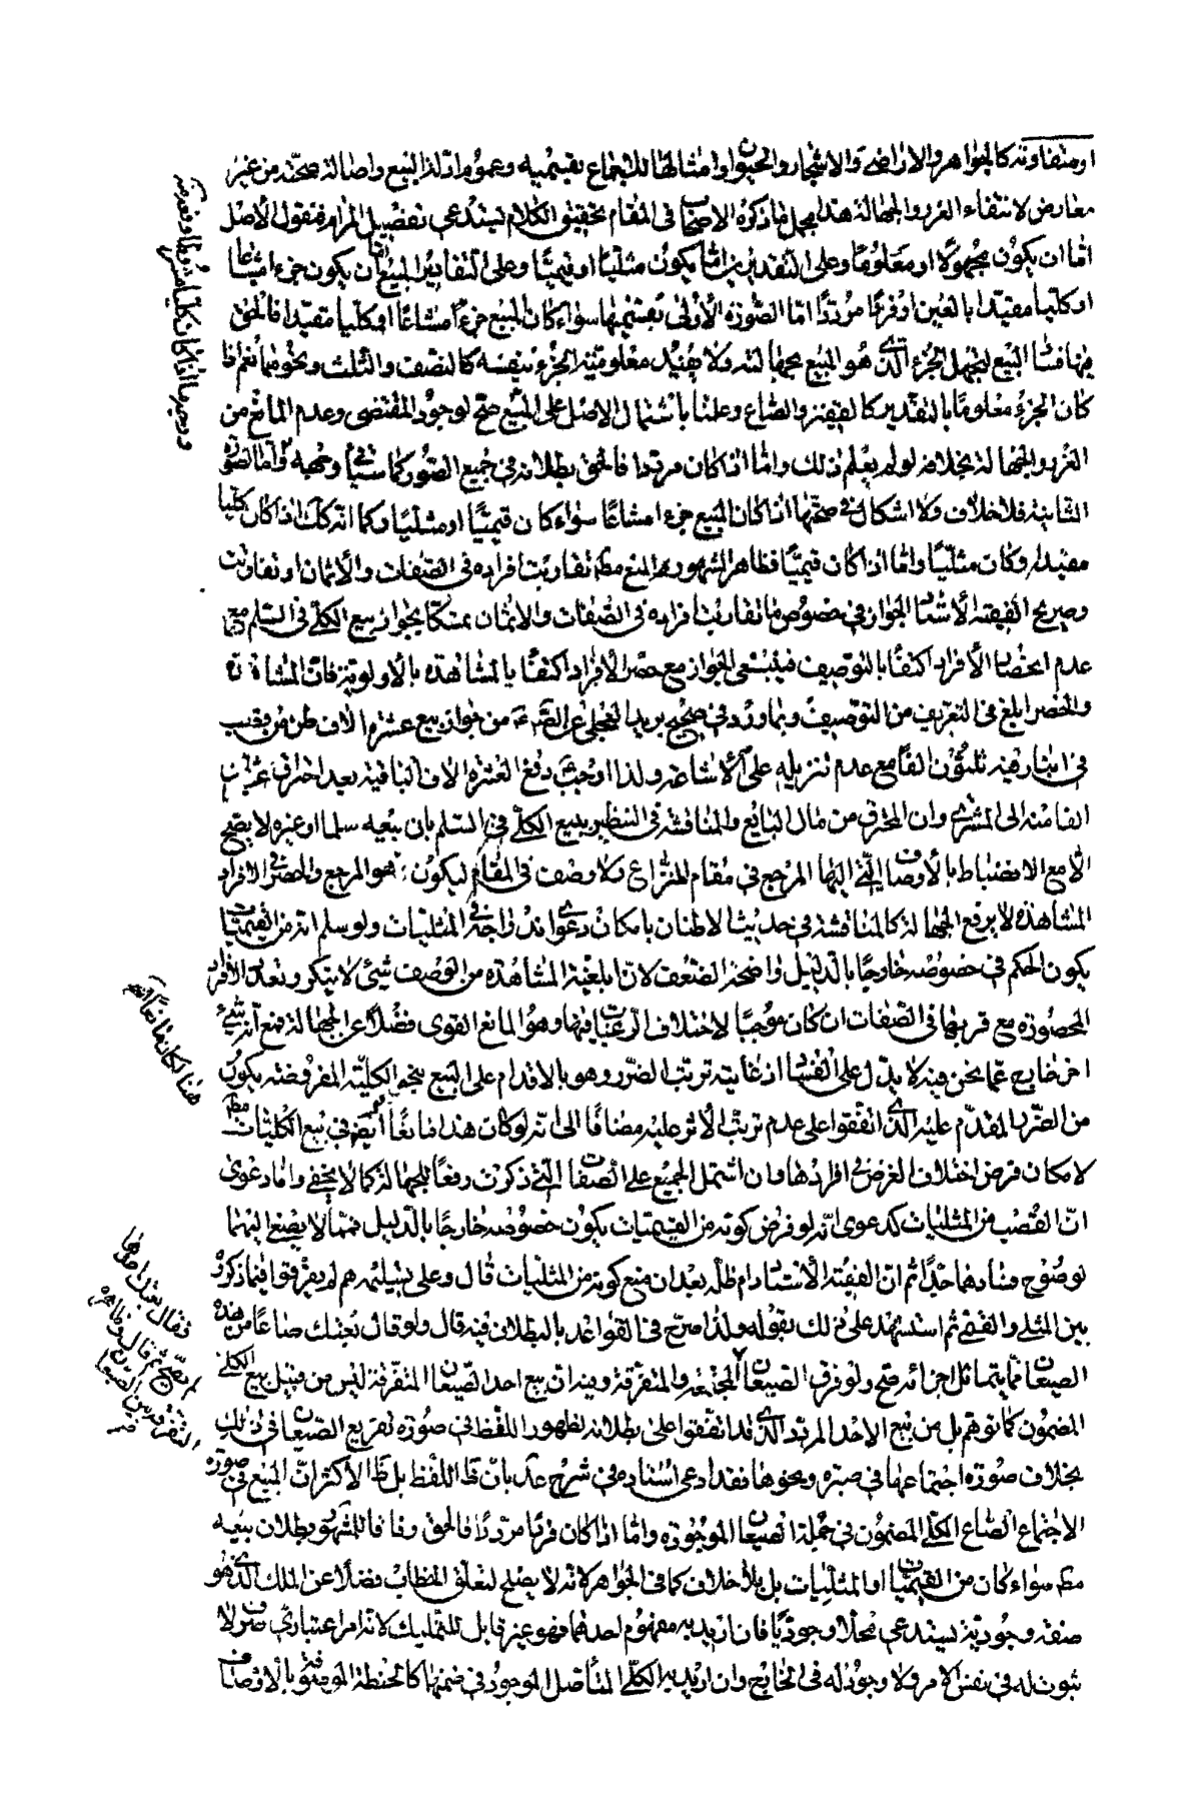 او متفاوته كالجواهر والاراضى والاشجار والحيوان وامثالها للاجماع بقسميه وعموم ادلة البيع واصالة صحته من غير
معارض لانتفاء الغرر والجهالة هذا مجمل ما ذكره الاصحاب فى المقام وتحقيق الكلام يستدعى تفصيل المرام فنقول الاصل
اما ان يكون مجهولا او معلوما وعلى التقديرين اما يكون مثليا او قيميا وعلى التقادير المبيع اما ان يكون جزء مشاعا
او كليا مقيدا بالعين او فردا مرددا اما الصورة الاولى بقسميها سواء كان المبيع جزءا مشاعا او كليا مقيدا فالحق
فيها فساد البيع لجهل الجزء الذى هو المبيع بجهالته ولا يفيد معلومية الجزء بنفسه كالنصف والثلث ونحوهما نعم اذا
كان الجزء معلوما بالتقدير كالقفيز والصاع وعلمنا باشتمال الاصل على المبيع صح لوجود المقتضى وعدم المانع من
الغرر والجهالة بخلافه لو لم يعلم ذلك واما اذا كان مرددا فالحق بطلانه فى جميع الصور كما سيأتى وجهه واما الصورة
الثانية فلا خلاف ولا اشكال فى صحتها اذا كان المبيع جزء مشاعا سواء كان قيميا او مثليا وكما انه كك اذا كان كليا
مقيدا وكان مثليا واما اذا كان قيميا فظاهر المشهور هو المنع مط تقاربت افراده فى الصفات والاثمان او تفاوتت
وصريح الفقيه الاستاد الجواز فى خصوص ما تقاربت افراده فى الصفات والاثمان متمسكا بجواز بيع الكلى فى السلم مع
عدم انحصار الافراد اكتفاء بالتوصيف فينبغى الجواز مع حصر الافراد اكتفاء بالمشاهدة بالاولوية فان المشاهدة
والحصر ابلغ فى التعريف من التوصيف وبما ورد فى صحيح بريد العجلى عن الصادق ع من جواز بيع عشرة الاف طن من قصب
فى انبار فيه ثلثون الفا مع عدم تنزيله على الاشاعة ولذا اوجب دفع العشرة الاف الباقية بعد احتراق عشرين
الفا منه الى المشترى وان المحترق من مال البايع والمناقشة فى التنظير ببيع الكلى فى السلم بان بيعه سلما او غيره لا يصح
الا مع الانضباط بالاوصاف التى اليها المرجع فى مقام النزاع ولا وصف فى المقام ليكون هو المرجع والحصر فى الافراد
المشاهدة لا يرفع الجهالة كالمناقشة فى حديث الاطنان بامكان دعوى اندراجه فى المثليات ولو سلم انه من القيميات
يكون الحكم فى خصوصه خارجا بالدليل واضحة الضعف لان ابلغية المشاهدة من الوصف شىء لا ينكر وتعدد الافراد
المحصورة مع قربها فى الصفات ان كان موجبا لاختلاف الرغبات فيها وهو المانع القوى فضلا عن الجهالة فمع انه شىء
اخر خارج عما نحن فيه لا يدل على الفساد اذ غايته ترتب الضرر وهو بالاقدام على البيع بنحو الكلية المفروضة يكون
من الضرر المقدم عليه الذى اتفقوا على عدم ترتب الاثر عليه مضافا الى انه لو كان هذا مانعا لمنع فى بيع الكليات مط
لامكان فرض اختلاف الغرض فى افرادها وان اشتمل الجميع على الصفات التى ذكرت رفعا للجهالة كما لا يخفى واما دعوى
ان القصب من المثليات كدعوى انه لو فرض كونه من القيميات يكون خصوصه خارجا بالدليل فمما لا يصغى اليهما
لوضوح فسادهما جدا ثم ان الفقيه الاستاد دام ظله بعد ان منع كونه من المثليات قال وعلى تسليمه هم لم يفرقوا فيما ذكروه
بين المثلى والقيمى ثم استشهد على ذلك بقوله ولذا صرح فى القواعد بالبطلان فيه قال ولو قال بعتك صاعا من هذه
الصيعان مما يتماثل اجزائه صح ولو فرق الصيعان المجتمعة والمتفرقة وبيد ان بيع احد الصيعان المتفرقة ليس من قبيل بيع الكلى
المضمون كما توهم بل من بيع الاحد المردد الذى قد اتفقوا على بطلانه لظهور اللفظ فى صورة تفريع الصيعان فى ذلك
بخلاف صورة اجتماعها فى صبرة ونحوها فقد ادعى استاده فى شرح عد بان ظ اللفظ بل ظ الاكثر ان المبيع فى صورة
الاجتماع الصاع الكلى المضمون فى جملة الصيعان الموجودة واما اذا كان فردا مرددا فالحق وفاقا للمشهور بطلان بيعه
مط سواء كان من القيميات او المثليات بل بلا خلاف كما فى الجواهر لانه لا يصلح لتعلق الخطاب فضلا عن الملك الذى هو
صفة وجودية يستدعى محلا وجوديا فان اريد به مفهوم احدهما فهو غير قابل للتمليك لانه امر اعتبارى صرف لا
ثبوت له فى نفس الامر ولا وجود له فى الخارج وان اريد به الكلى المتأصل الموجود فى ضمنها كالحنطة الموصوفة بالاوصاف
هذا لكان مانعا
فقال بعتك احدها
لم يصح ثم قال
المتفرقة من الصيعان